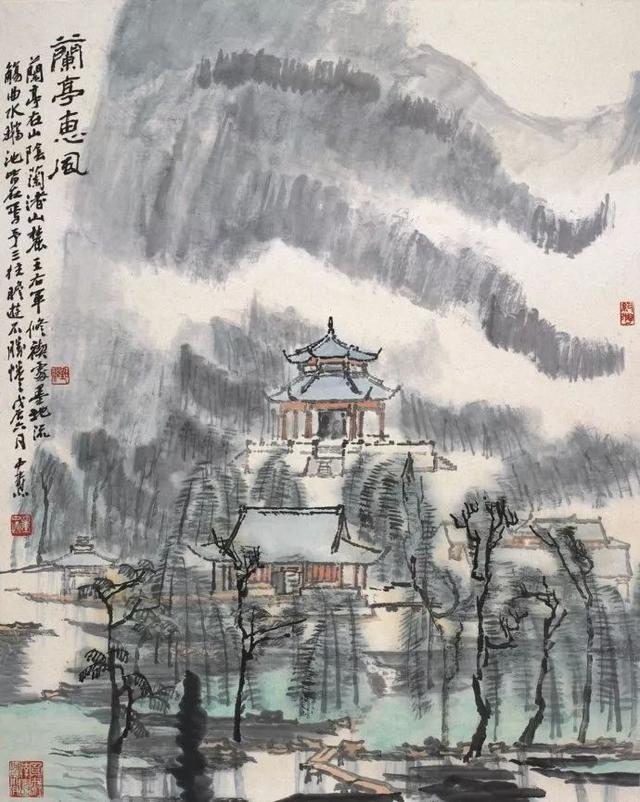 蘭亭惠風
蘭亭在山陰蘭渚山麓王右軍修禊處墨池流
觴曲水鵝池皆在焉予三往瞻遊不勝戊辰六月